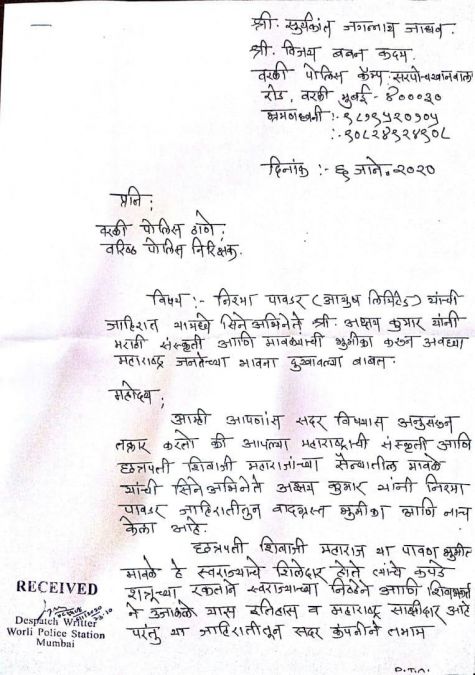 श्री. सुर्यकांत जगन्नाथ जाधव.
श्री. विजय बबन कदम.
वरळी पोलिस कॅम्प, सरपोचखानवाला
रोड, वरळी मुंबई - ४०००३०
भ्रमणध्वनी :- ९८७९५२०१०५
:- ९०८२४९२४९०८
दिनांक :- ६ जाने. २०२०
प्रति;
वरळी पोलिस ठाणे;
वरिष्ठ पोलिस निरिक्षक.
विषय :- निरमा पावडर (आयुष लिमिटेड) यांची
जाहिरात यामध्ये सिनेअभिनेते श्री. अक्षय कुमार यांनी
मराठी संस्कृती आणि मावळ्यांची भुमीका करुन अवघ्या
महाराष्ट्र जनतेच्या भावना दुखावल्या बाबत.
महोदय;
आम्ही आपणांस सदर विषयास अनुसरून
तक्रार करतो की आपल्या महाराष्ट्राची संस्कृती आणि
छत्रपती शिवाजी महाराजांच्या सैन्यातील मावळे
यांची सिने अभिनेते अक्षय कुमार यांनी निरमा
पावडर जाहिरातीतुन वादग्रस्त भुमीका आणि नाच
केला आहे.
छत्रपती शिवाजी महाराज या पावण भुमीत
मावळे हे स्वराज्याचे शिलेदार होते त्यांचे कपडे
शत्रूच्या रक्ताने स्वराज्याच्या निष्ठेने आणि
ने उजळले यास इतिहास व महाराष्ट्र साक्षीदार आहे
परंतु या जाहिरातीतून सदर कंपनीने तमाम
RECEIVED
Despatch Writter
Worli Police Station
Mumbai
P.T.O.